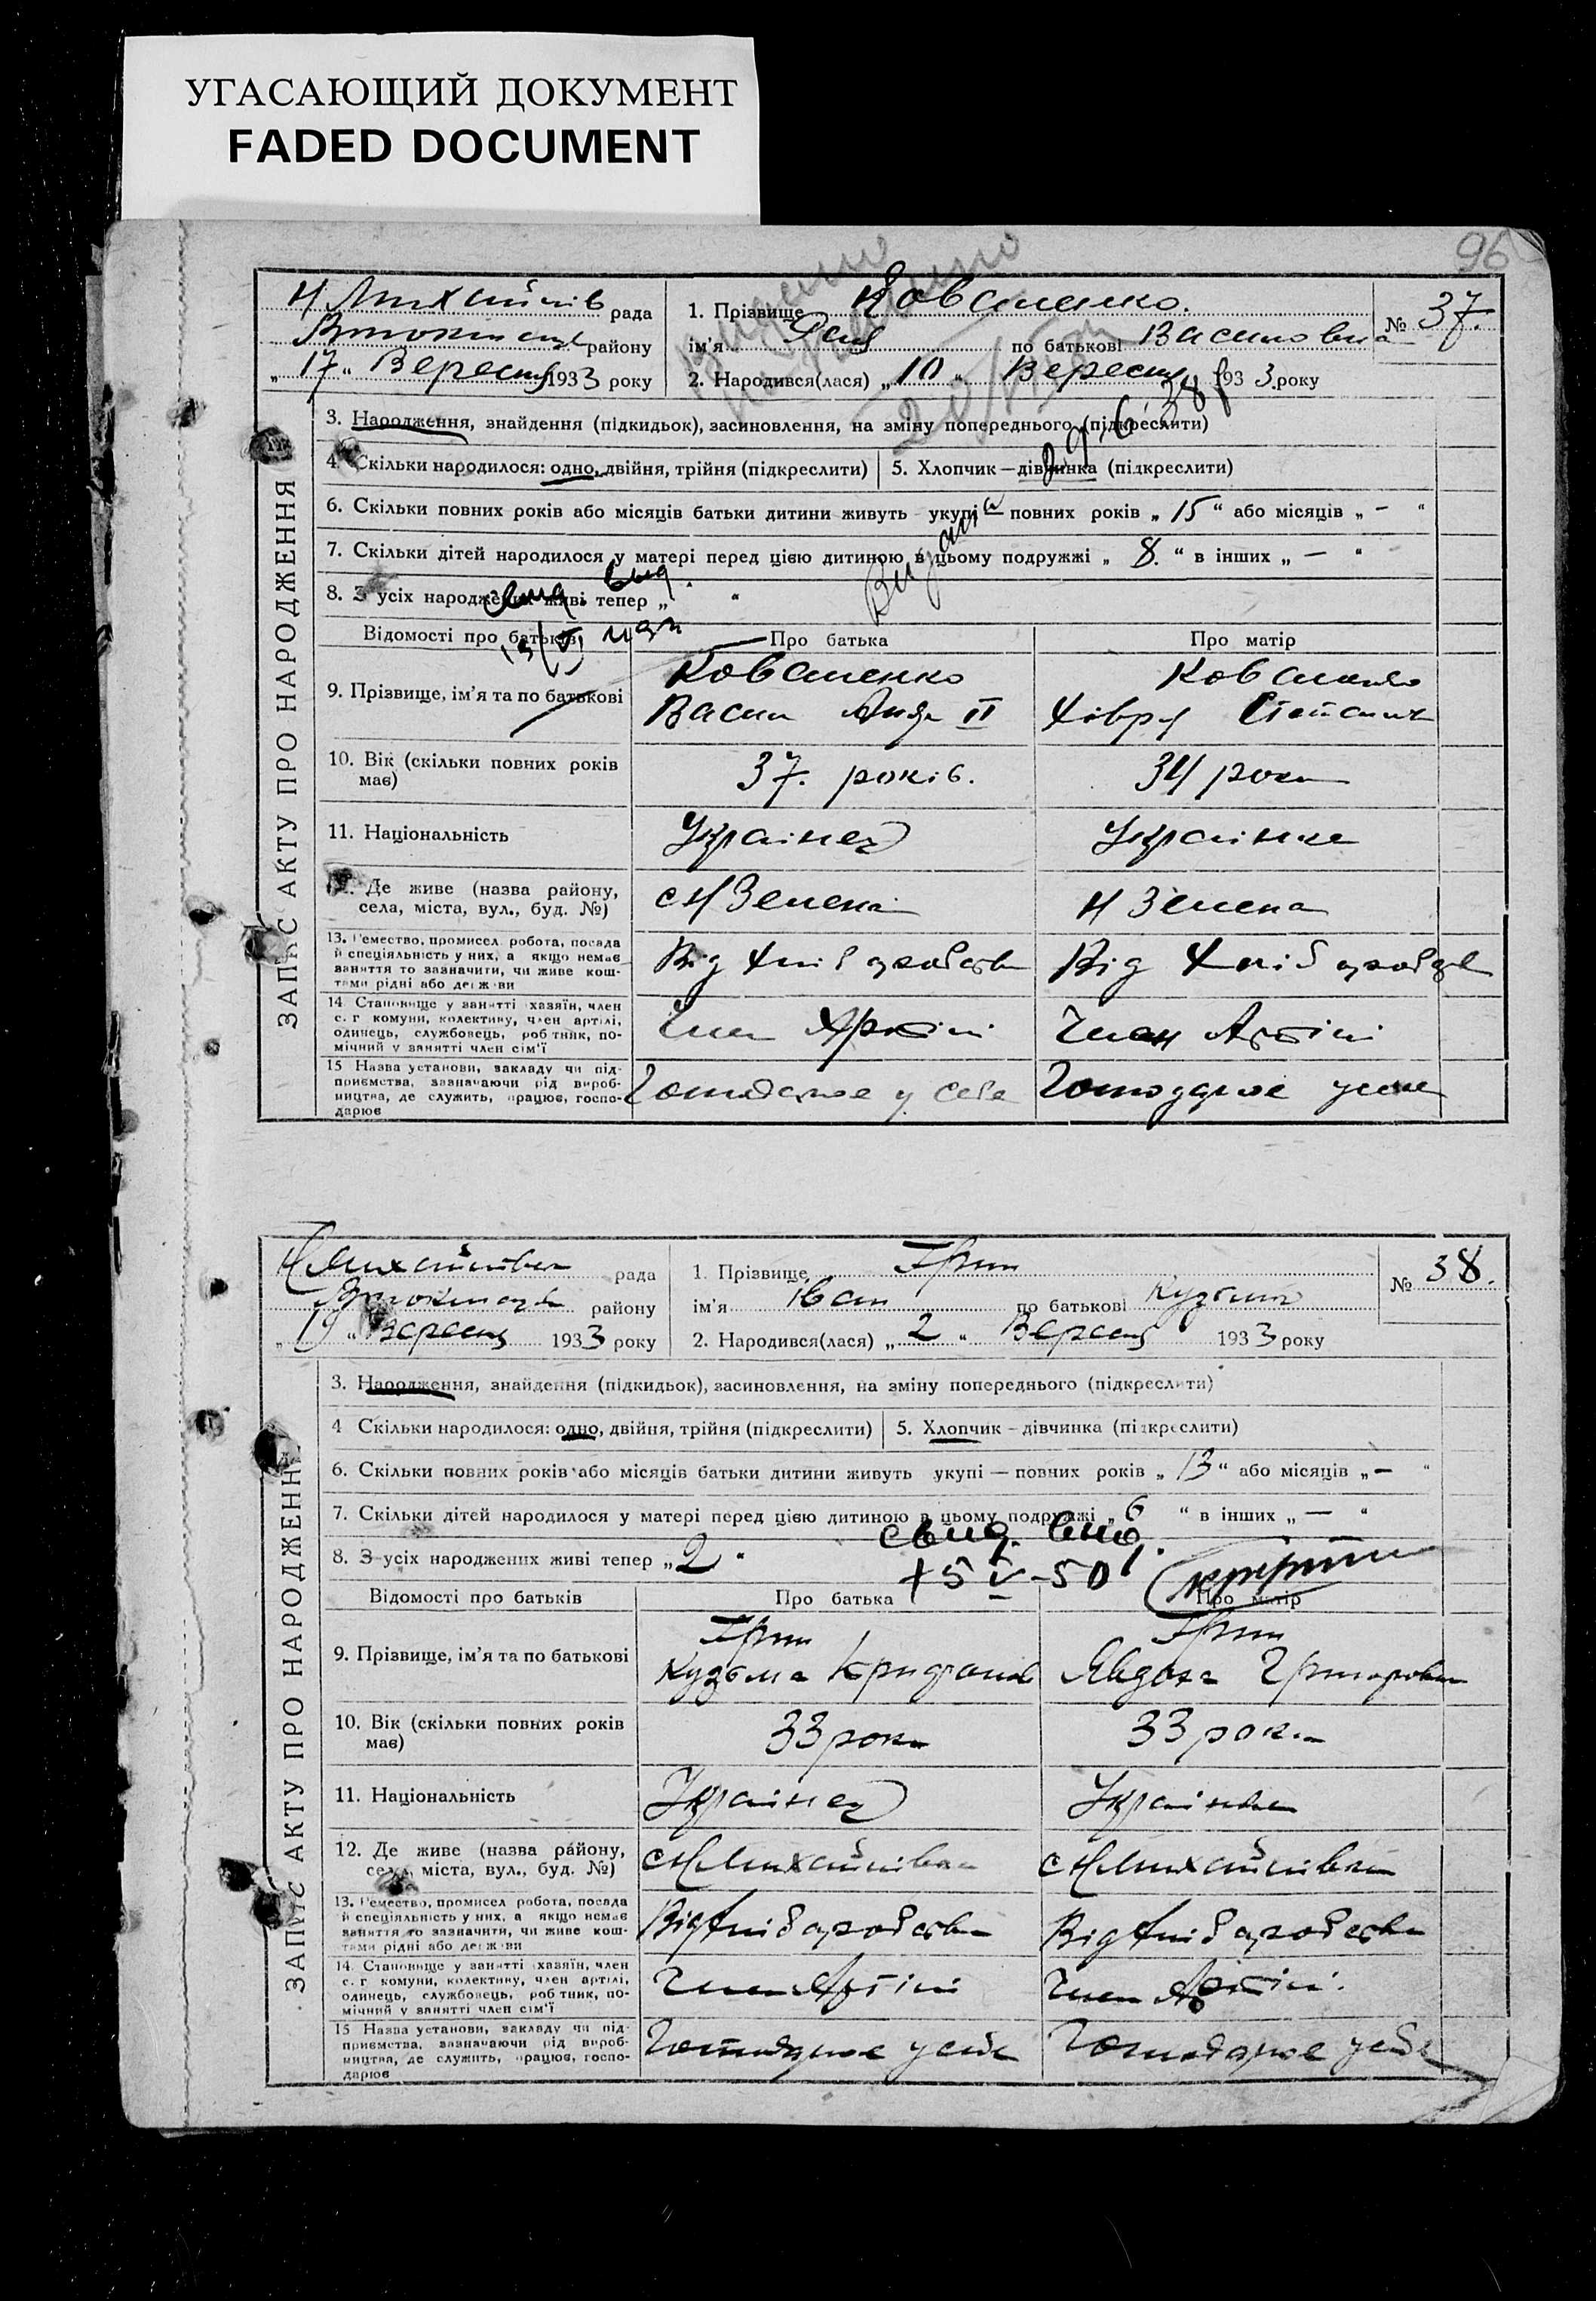 УГАСАЮЩИЙ ДОКУМЕНТ
FADED DOCUMENT
96
рада
району
„17“ Вересня 1933 року
1. Прізвище Коваленко.
ім'я Рая по батькові Василовна
2. Народився(лася) „10“ Вересня 1933 року
№ 37.
29/6 38
ЗАПИС АКТУ ПРО НАРОДЖЕННЯ
3. Народження, знайдення (підкидьок), засиновлення, на зміну попереднього (підкреслити)
4. Скільки народилося: одно, двійня, трійня (підкреслити)
5. Хлопчик — дівчинка (підкреслити)
6. Скільки повних років або місяців батьки дитини живуть укупі — повних років „15“ або місяців „—“
7. Скільки дітей народилося у матері перед цією дитиною в цьому подружжі „8.“ в інших „—“
8. З усіх народжених живі тепер „ “
Відомості про батьків
Про батька
Про матір
9. Прізвище, ім'я та по батькові
Коваленко
Васил
Коваленко
Хівря
10. Вік (скільки повних років має)
37. років.
34 роки
11. Національність
Українец
Українка
12. Де живе (назва району, села, міста, вул., буд. №)
с Н Зелена
Н Зелена
13. Ремество, промисел робота, посада
й спеціяльність у них, а якщо немає
заняття то зазначити, чи живе кош-
тами рідні або держави
Від Хліборобства
Від Хлібороб
14. Становище у занятті хазяїн, член
с. г комуни, колективу, член артілі,
одинець, службовець, робтник, по-
мічний у занятті член сім'ї
Член Артілі
Член Артілі
15 Назва установи, закладу чи під-
приємства, зазначаючи рід вироб-
ництва, де служить, працює, госпо-
дарює
Господарює у себе
Господарює у себе
Н Михайлівка рада
району
„19“ Вересня 1933 року
1. Прізвище
ім'я Іван по батькові
2. Народився(лася) „2“ Вересня 1933 року
№ 38.
ЗАПИС АКТУ ПРО НАРОДЖЕННЯ
3. Народження, знайдення (підкидьок), засиновлення, на зміну попереднього (підкреслити)
4 Скільки народилося: одно, двійня, трійня (підкреслити)
5. Хлопчик – дівчинка (підкреслити)
6. Скільки повних років або місяців батьки дитини живуть укупі — повних років „13“ або місяців „—“
7. Скільки дітей народилося у матері перед цією дитиною в цьому подружжі „6“ в інших „—“
8. З усіх народжених живі тепер „2“
Відомості про батьків
Про батька
Про матір
9. Прізвище, ім'я та по батькові
Кузьма
Явдоха Григоровна
10. Вік (скільки повних років має)
33 роки
33 роки
11. Національність
Українец
Українка
12. Де живе (назва району, села, міста, вул., буд. №)
с Н Михайлівка
с Н Михайлівка
13. Ремество, промисел робота, посада
й спеціяльність у них, а якщо немає
заняття то зазначити, чи живе кош-
тами рідні або держави
Від Хліборобства
Від Хліборобства
14. Становище у занятті хазяїн, член
с. г комуни, колективу, член артілі,
одинець, службовець, робтник, по-
мічний у занятті член сім'ї
Член Артілі
Член Артілі.
15 Назва установи, закладу чи під-
приємства, зазначаючи рід вироб-
ництва, де служить, працює, госпо-
дарює
Господарює у себе
Господарює у себе